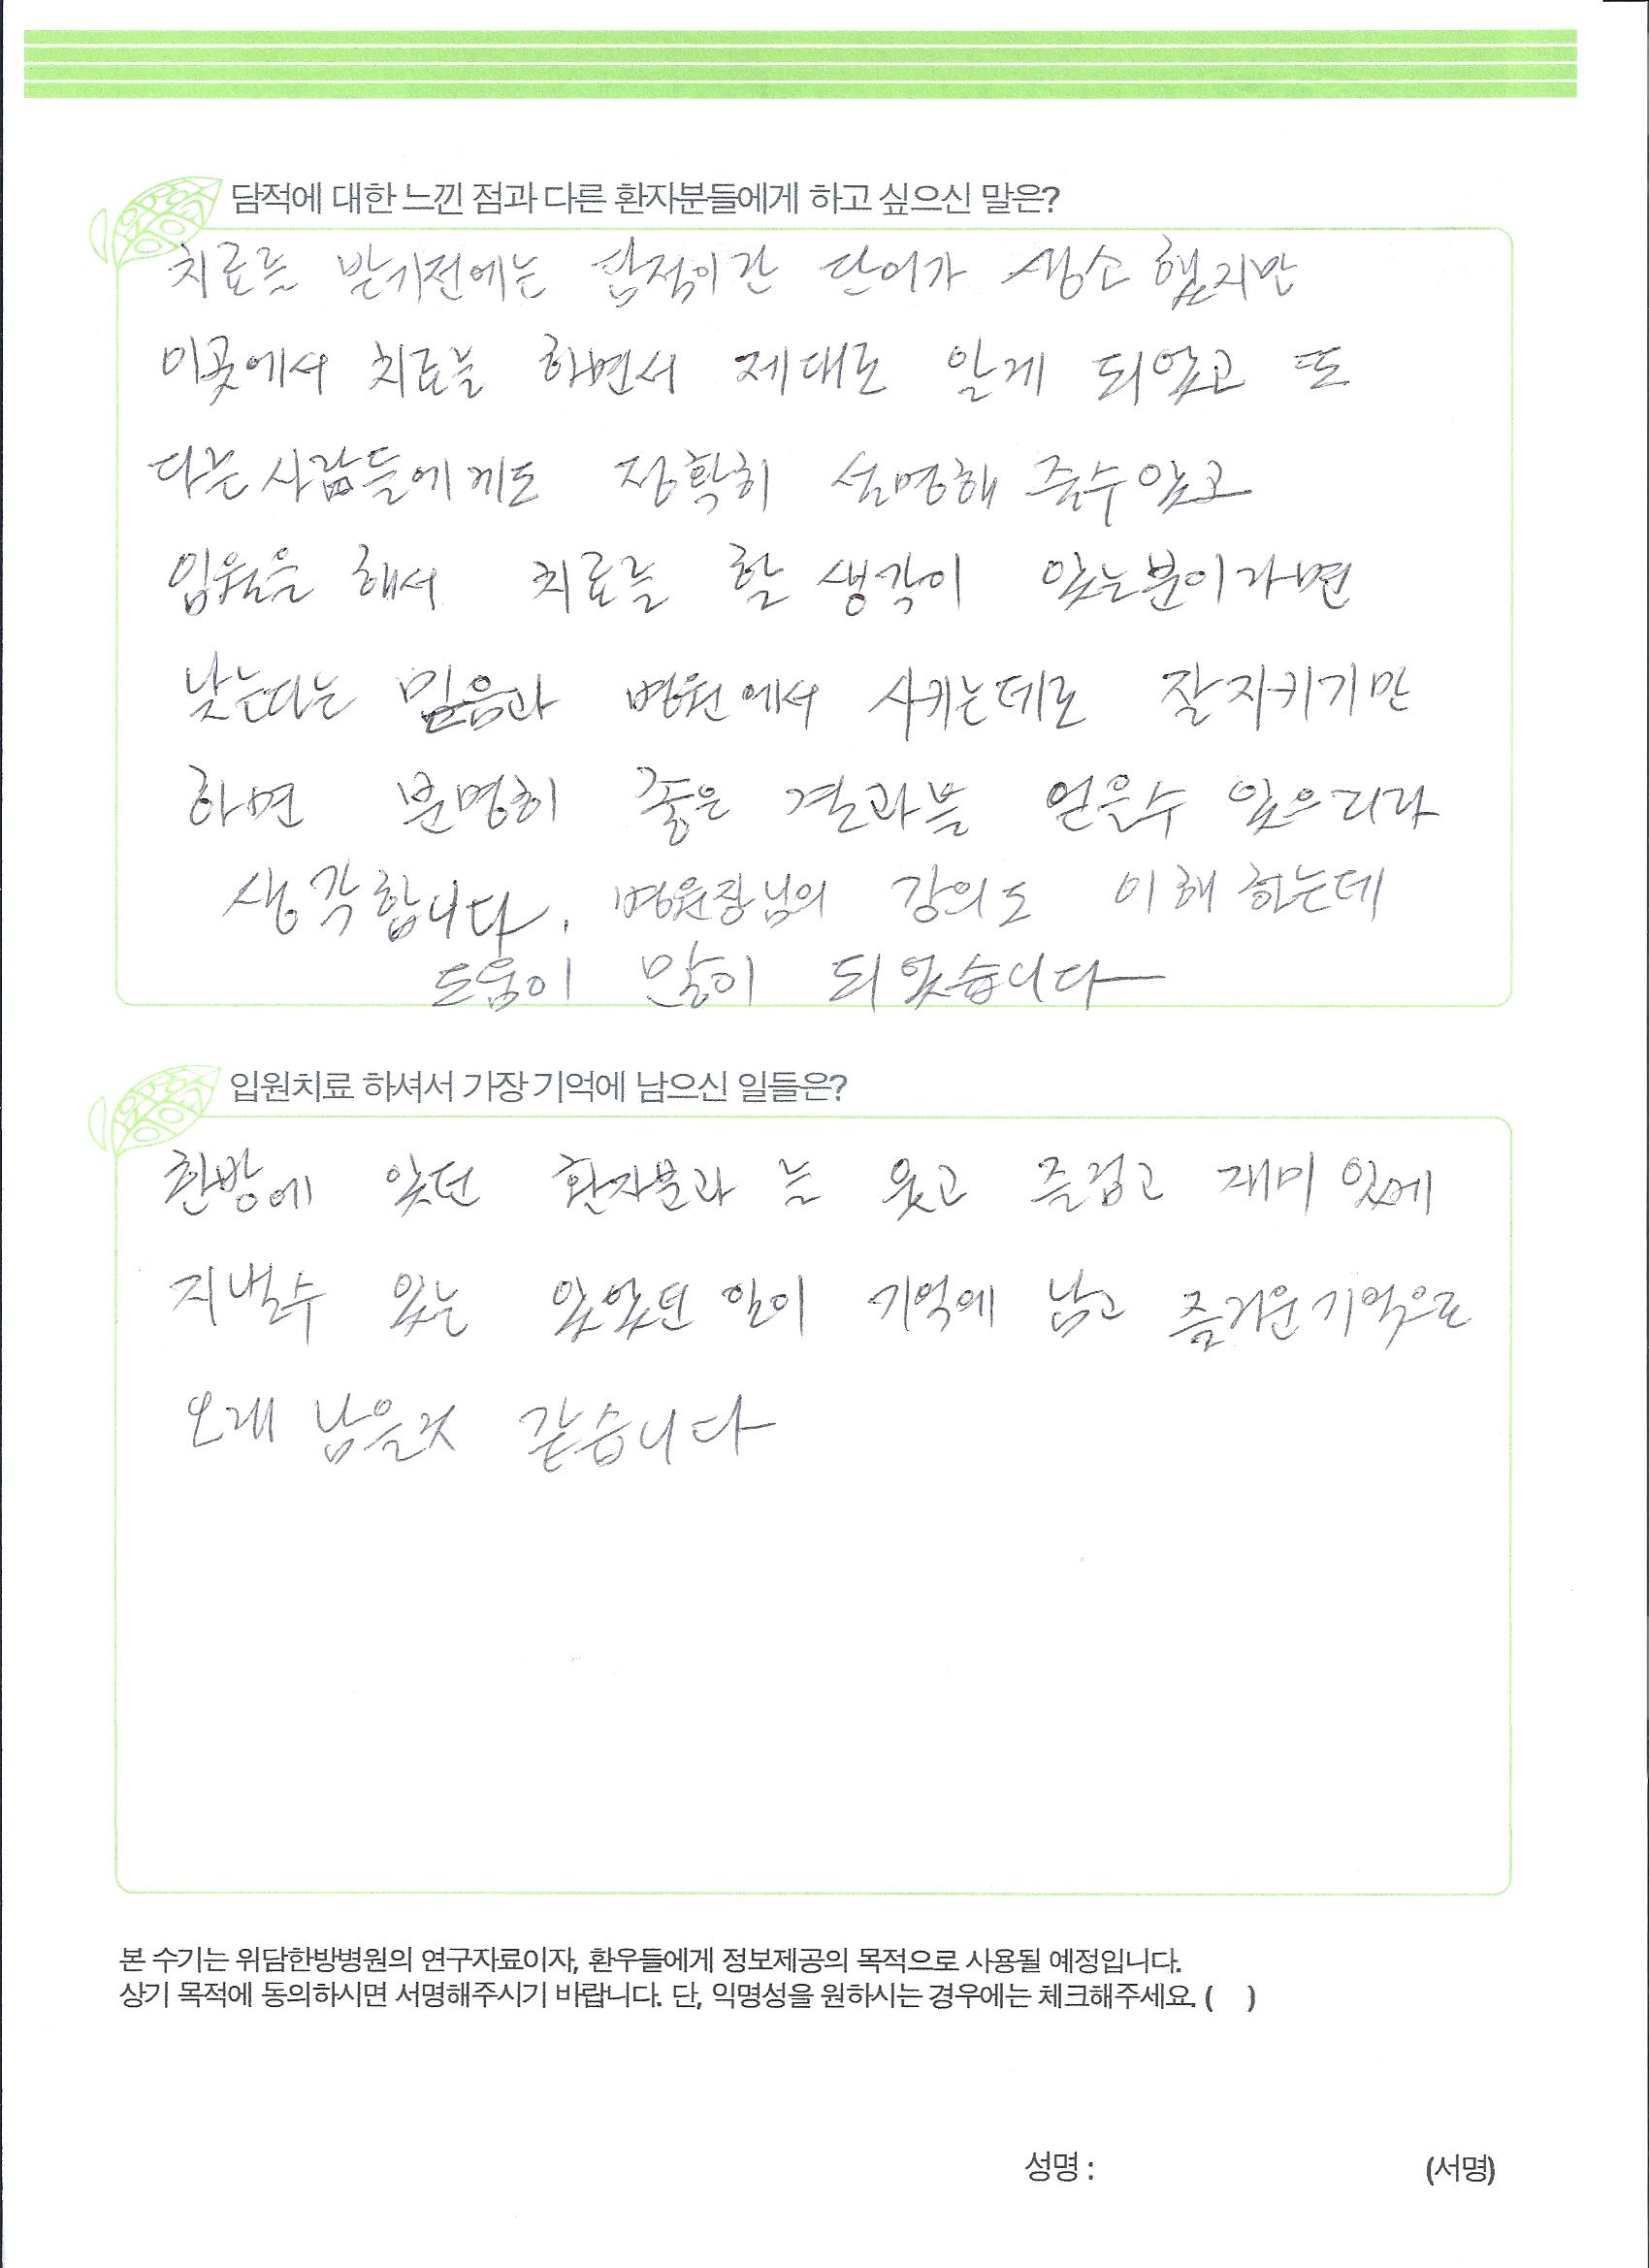 담적에 대한 느낀 점과 다른 환자분들에게 하고 싶으신 말은?
치료를 받기전에는 담적이란 단어가 생소 했지만
이곳에서 치료를 하면서 제대로 알게 되었고 또
다른 사람들에게도 정확히 설명해 줄수 있고
입원을 해서 치료를 할 생각이 있는분이라면
낫는다는 믿음과 병원에서 시키는데로 잘지키기만
하면 분명히 좋은 결과를 얻을수 있으리라
생각합니다. 병원장님의 강의도 이해 하는데
도움이 많이 되었습니다
입원치료 하셔서 가장 기억에 남으신 일들은?
한방에 있던 환자분과 늘 웃고 즐겁고 재미 있게
지낼수 있는 있었던 일이 기억에 남고 즐거운 기억으로
오래 남을것 같습니다
본 수기는 위담한방병원의 연구자료이자, 환우들에게 정보제공의 목적으로 사용될 예정입니다.
상기 목적에 동의하시면 서명해주시기 바랍니다. 단, 익명성을 원하시는 경우에는 체크해주세요. (    )
성명 : (서명)